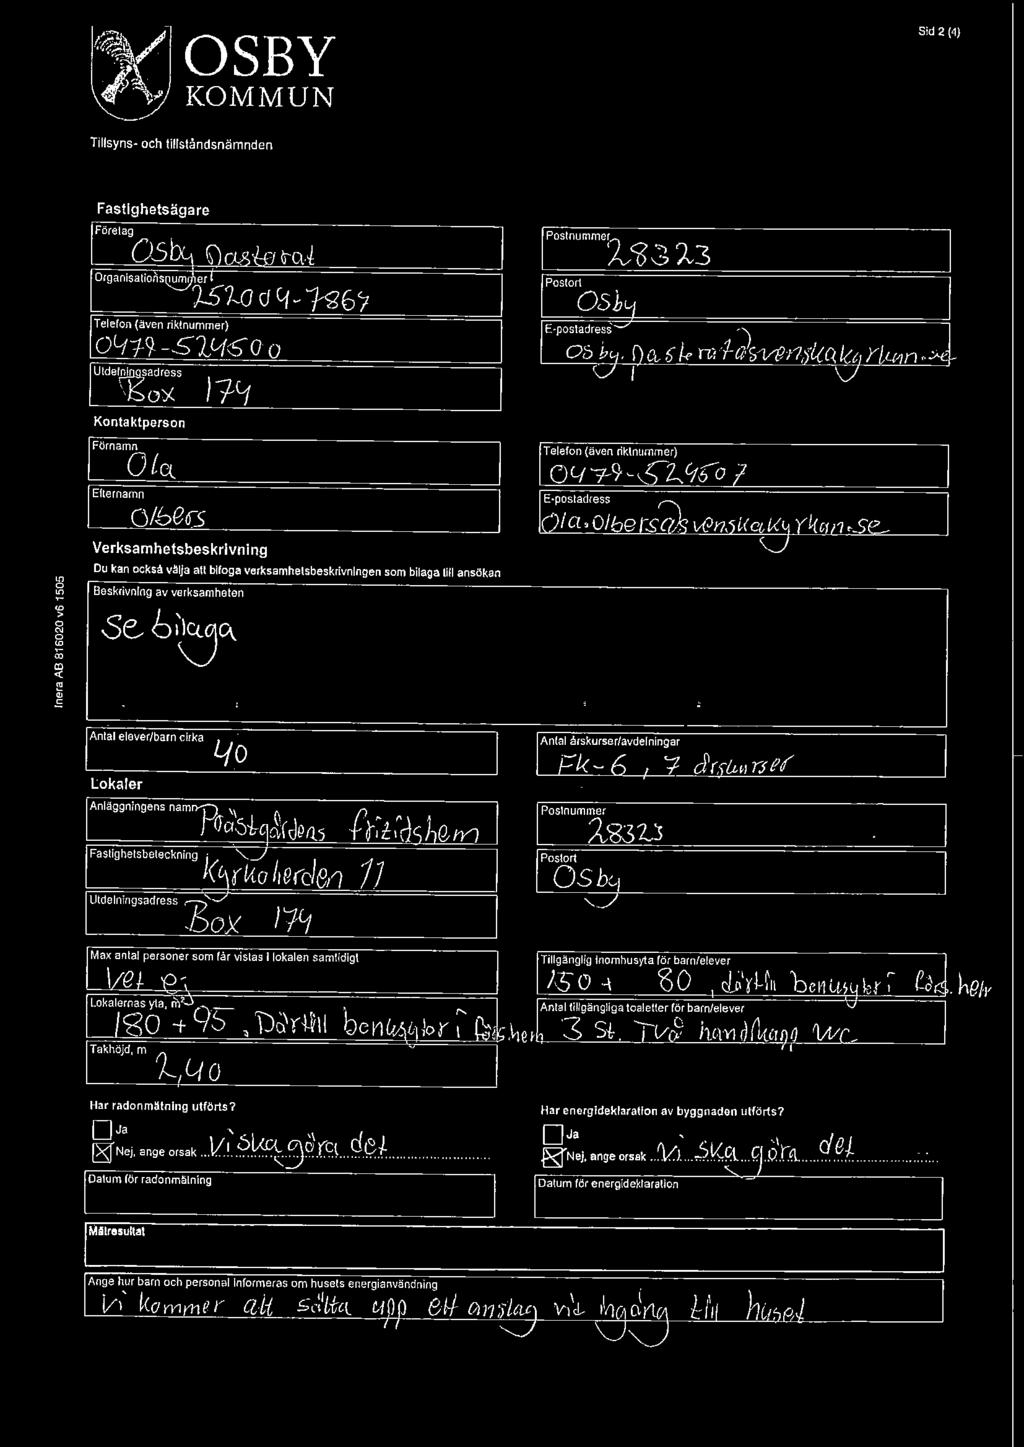 Sid 2 (4)
OSBY
KOMMUN
Tillsyns- och tillståndsnämnden
Fastighetsägare
Företag
Osby Pastorat
Postnummer
28323
Organisationsnummer
252004-7867
Postort
Osby
Telefon (även riktnummer)
0479-524500
E-postadress
Osby.pastorat@svenskakyrkan.se
Utdelningsadress
Box 174
Kontaktperson
Förnamn
Ola
Telefon (även riktnummer)
0479-524507
Efternamn
Olbers
E-postadress
Ola.Olbers@svenskakyrkan.se
Verksamhetsbeskrivning
Du kan också välja att bifoga verksamhetsbeskrivningen som bilaga till ansökan
Beskrivning av verksamheten
Se bilaga
Inera AB 816020 v6 1505
Antal elever/barn cirka
40
Antal årskurser/avdelningar
FK-6, 7 årskurser
Lokaler
Anläggningens namn
Prästgårdens fritidshem
Postnummer
28323
Fastighetsbeteckning
Kyrkoherden 11
Postort
Osby
Utdelningsadress
Box 174
Max antal personer som får vistas i lokalen samtidigt
Vet ej
Tillgänglig inomhusyta för barn/elever
150 + 80, därtill bonusytor i förs.hem
Lokalernas yta, m²
180 + 95, Därtill bonusytor i förs.hem
Antal tillgängliga toaletter för barn/elever
3 St. Två handikapp WC
Takhöjd, m
2,40
Har radonmätning utförts?
Ja
Nej, ange orsak Vi ska göra det
Har energideklaration av byggnaden utförts?
Ja
Nej, ange orsak Vi ska göra det
Datum för radonmätning
Datum för energideklaration
Mätresultat
Ange hur barn och personal informeras om husets energianvändning
Vi kommer att sätta upp ett anslag vid ingång till huset